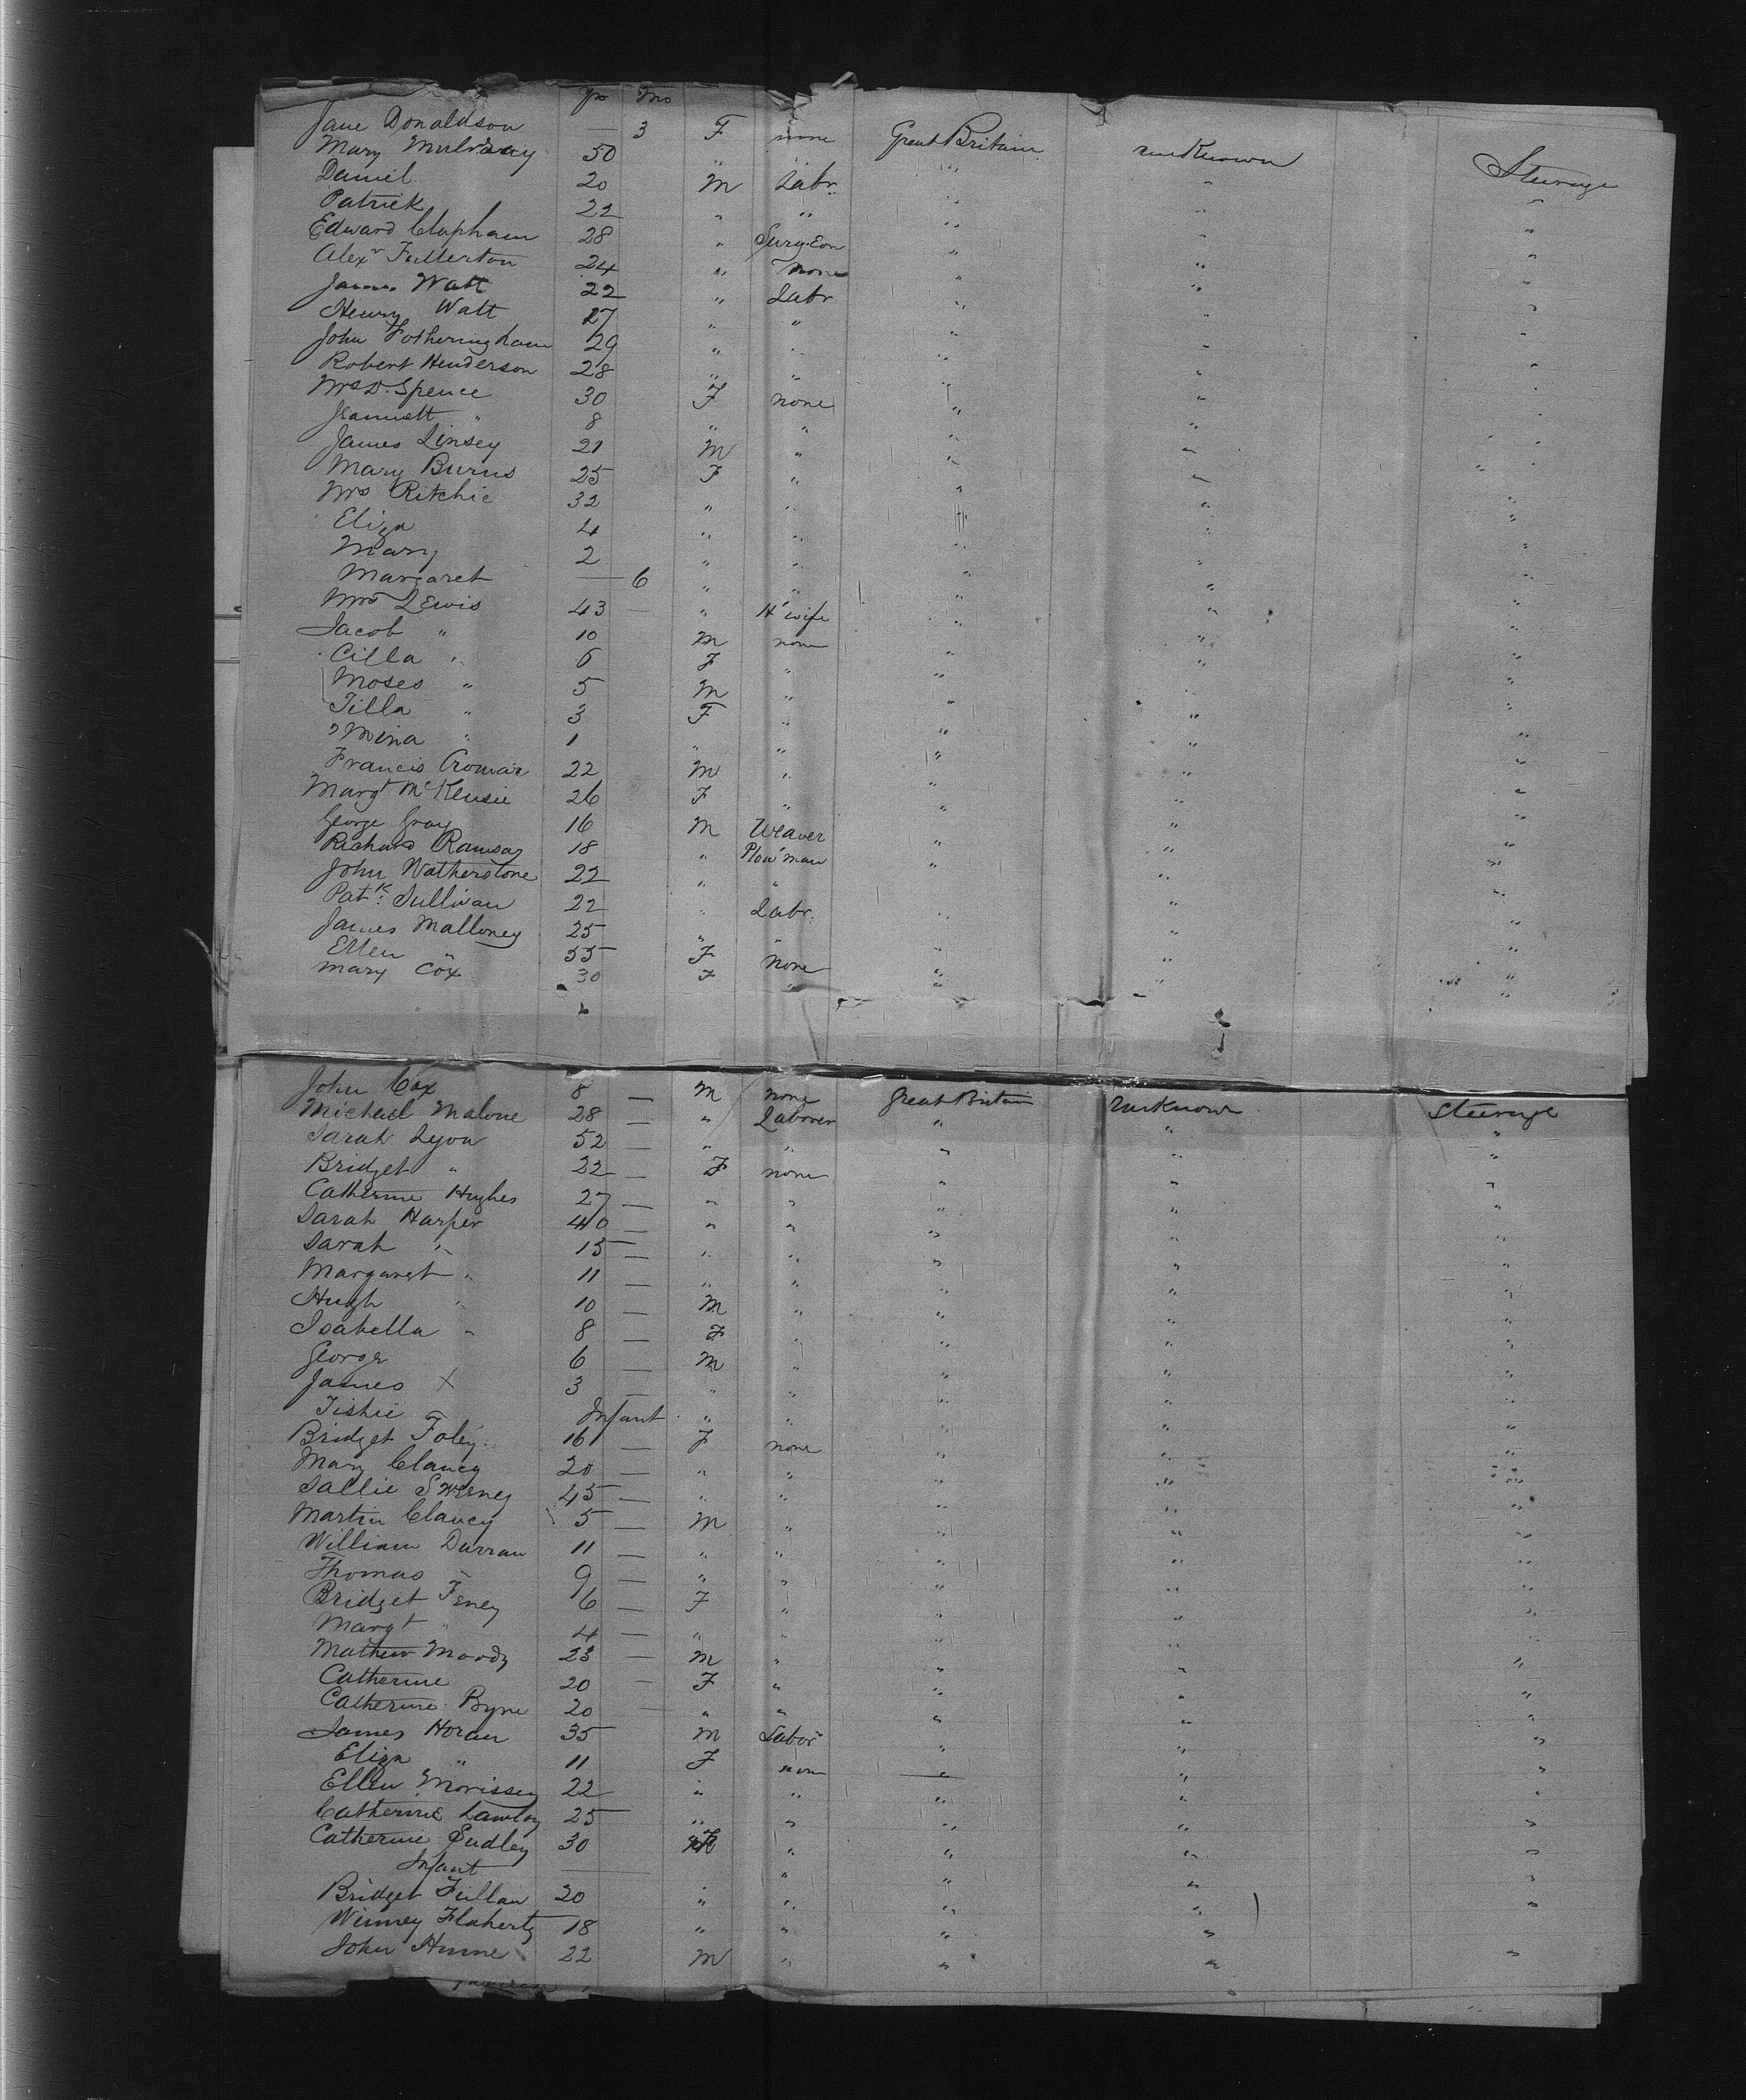 Yrs Mos
Jane Donaldson — 3 F none Great Britain unknown Steerage
Mary Mulvany 50 " " " " "
Daniel 20 M Labr. " " "
Patrick 22 " " " " "
Edward Clapham 28 " Surgeon " " "
Alexr Fullerton 24 " None " " "
James Watt 22 " Labr " " "
Henry Watt 27 " " " " "
John Fotheringham 29 " " " " "
Robert Henderson 28 " " " " "
Mrs D. Spence 30 F none " " "
Jeannett " 8 " " " " "
James Linsey 21 M " " " "
Mary Burns 25 F " " " "
Mrs Ritchie 32 " " " " "
Eliza 4 " " " " "
Mary 2 " " " " "
Margaret — 6 " " " " "
Mrs Lewis 43 — " H'wife " " "
Jacob " 10 M none " " "
Cilla " 6 F " " " "
Moses " 5 M " " " "
Tilla " 3 F " " " "
Mina " 1 " " " " "
Francis Cromar 22 M " " " "
Margt McKensie 26 F " " " "
George Gray 16 M Weaver " " "
Richard Ramsay 18 " Plow'man " " "
John Watherstone 22 " " " " "
Patk. Sullivan 22 " Labr. " " "
James Malloney 25 " " " " "
Ellen " 55 F None " " "
Mary Cox 30 F " " " "
John Cox 8 — M none Great Britain unknown Steerage
Michael Malone 28 — " Laborer " " "
Sarah Lyon 52 — " " " " "
Bridget " 22 — F none " " "
Catherine Hughes 27 — " " " " "
Sarah Harper 40 — " " " " "
Sarah " 15 — " " " " "
Margaret " 11 — " " " " "
Hugh " 10 — M " " " "
Isabella " 8 — F " " " "
George 6 — M " " " "
James X 3 — " " " " "
Tishie Infant " " " " "
Bridget Foley 16 — F none " " "
Mary Clancy 20 — " " " " "
Sallie Sweney 45 — " " " " "
Martin Clancy 5 — M " " " "
William Durran 11 — " " " " "
Thomas " 9 — " " " " "
Bridget Feney 6 — F " " " "
Margt " 4 — " " " " "
Mathew Moody 23 — M " " " "
Catherine 20 — F " " " "
Catherine Byrne 20 — " " " " "
James Horan 35 M Labor " " "
Eliza " 11 F none " " "
Ellen Morissey 22 " " " " "
Catherine Lawley 25 " " " " "
Catherine Endley 30 F " " " "
Infant — " " " "
Bridget Fullan 20 " " " " "
Winney Flaherty 18 " " " " "
John Hume 22 M " " " "